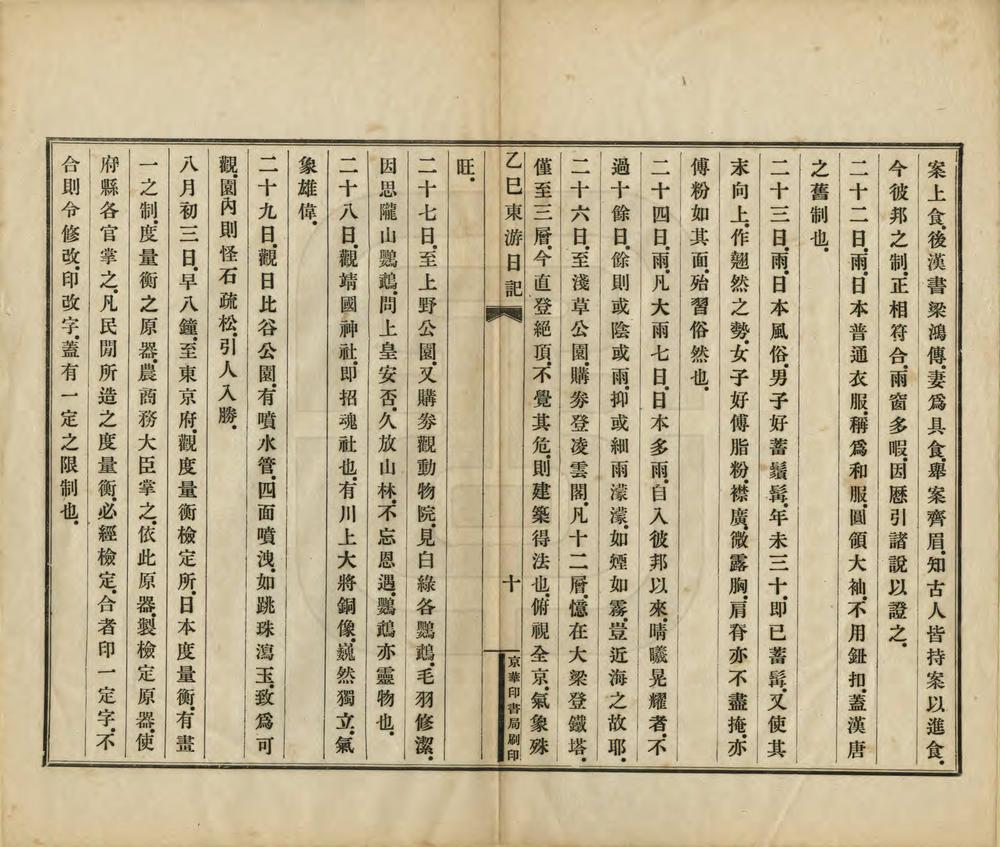 案上食。後漢書梁鴻傳。妻爲具食。舉案齊眉。知古人皆持案以進食。
今彼邦之制。正相符合。雨窗多暇。因歷引諸說以證之。
二十二日。雨。日本普通衣服。稱爲和服。圓領大袖。不用鈕扣。蓋漢唐
之舊制也。
二十三日。雨。日本風俗。男子好蓄鬚髯。年未三十。即已蓄髯。又使其
末向上。作翹然之勢。女子好傅脂粉。襟廣。微露胸。肩脊亦不盡掩。亦
傅粉如其面。殆習俗然也。
二十四日。雨。凡大雨七日。日本多雨。自入彼邦以來。晴曦晃耀者。不
過十餘日。餘則或陰或雨。抑或細雨濛濛。如煙如霧。豈近海之故耶。
二十六日。至淺草公園。購券登凌雲閣。凡十二層。憶在大梁登鐵塔。
僅至三層。今直登絕頂。不覺其危。則建築得法也。俯視全京。氣象殊
乙巳東游日記
十
京華印書局刷印
旺。
二十七日。至上野公園。又購券觀動物院。見白綠各鸚鵡。毛羽修潔。
因思隴山鸚鵡。問上皇安否。久放山林。不忘恩遇。鸚鵡亦靈物也。
二十八日。觀靖國神社。即招魂社也。有川上大將銅像。巍然獨立。氣
象雄偉。
二十九日。觀日比谷公園。有噴水管。四面噴洩。如跳珠瀉玉。致爲可
觀。園內則怪石疏松。引人入勝。
八月初三日。早八鐘。至東京府。觀度量衡檢定所。日本度量衡。有畫
一之制。度量衡之原器。農商務大臣掌之。依此原器。製檢定原器。使
府縣各官掌之。凡民閒所造之度量衡。必經檢定。合者印一定字。不
合則令修改。印改字。蓋有一定之限制也。